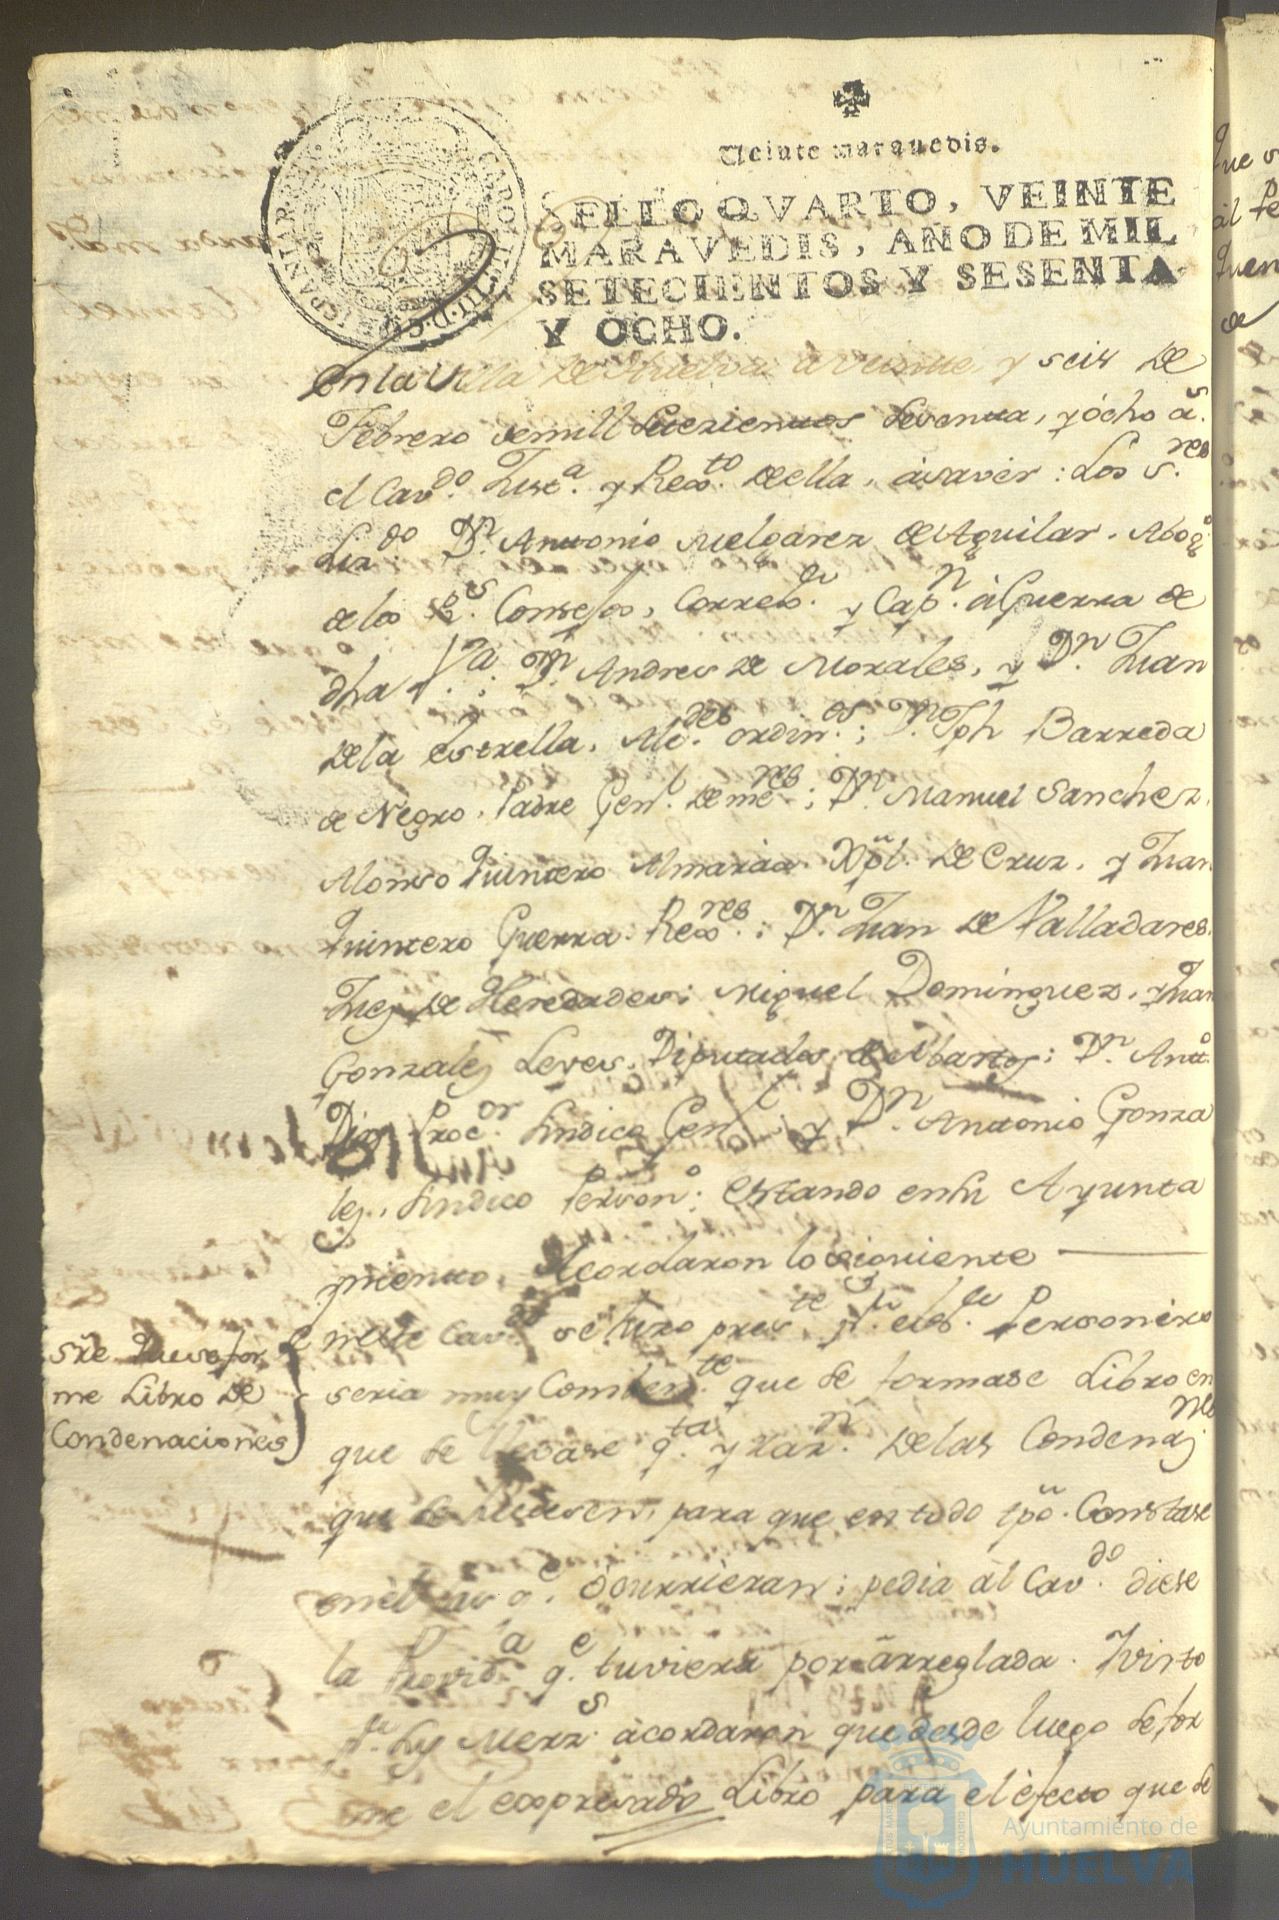 Veinte maravedis.
SELLO QVARTO, VEINTE
MARAVEDIS, AÑO DE MIL
SETECIENTOS Y SESENTA
Y OCHO.
En la Villa de Huelva a veinte y seis de
Febrero de mill setezientos sesenta, y ócho as.
el Cavdo. Justa. y Rexto. de ella, ásaver: Los Sres.
Lizdo. Dn. Antonio Melgarez de Aguilar, Abogo
de los Rs. Consejos, Correxor. y Capn. á Guerra de
dha Va.; Dn. Andres de Morales, y Dn. Juan
de la Estrella, Alcdes. ordinos.; Dn. Jph Barreda
de Negro, Padre Genl. de mēres; Dn. Manuel Sanchez,
Alonso Quintero Almaraz. Xpl. de Cruz, y Juan
Quintero Guerra: Rexres.; Dn. Juan de Valladares
Juez de Heredades: Miguel Dominguez, y Juan
Gonzalez Leves, Diputados de Abastos: Dn. Anto.
Procor. Sindico Genl. y Dn. Antonio Gonza
lez, Sindico Persono: estando en su Ayunta
miento, Acordaron lo siguiente
neste Cavdo. se hizo preste. pr. el Personero
seria muy Combente. que se formase Libro en
que se llevase qta. y razn. de las Condenaznes
que se hiciesen, para que en todo tpo. Constase
qe. ócurrieran; pedia al Cavdo. diese
la Provida. qe. tuviera por arreglada. Y visto
pr. sus Merzs. ácordaron que desde luego se for
me el expresado Libro para el éfecto que se
sre. que se for
me Libro de
Condenaciones
Ayuntamiento de
HUELVA